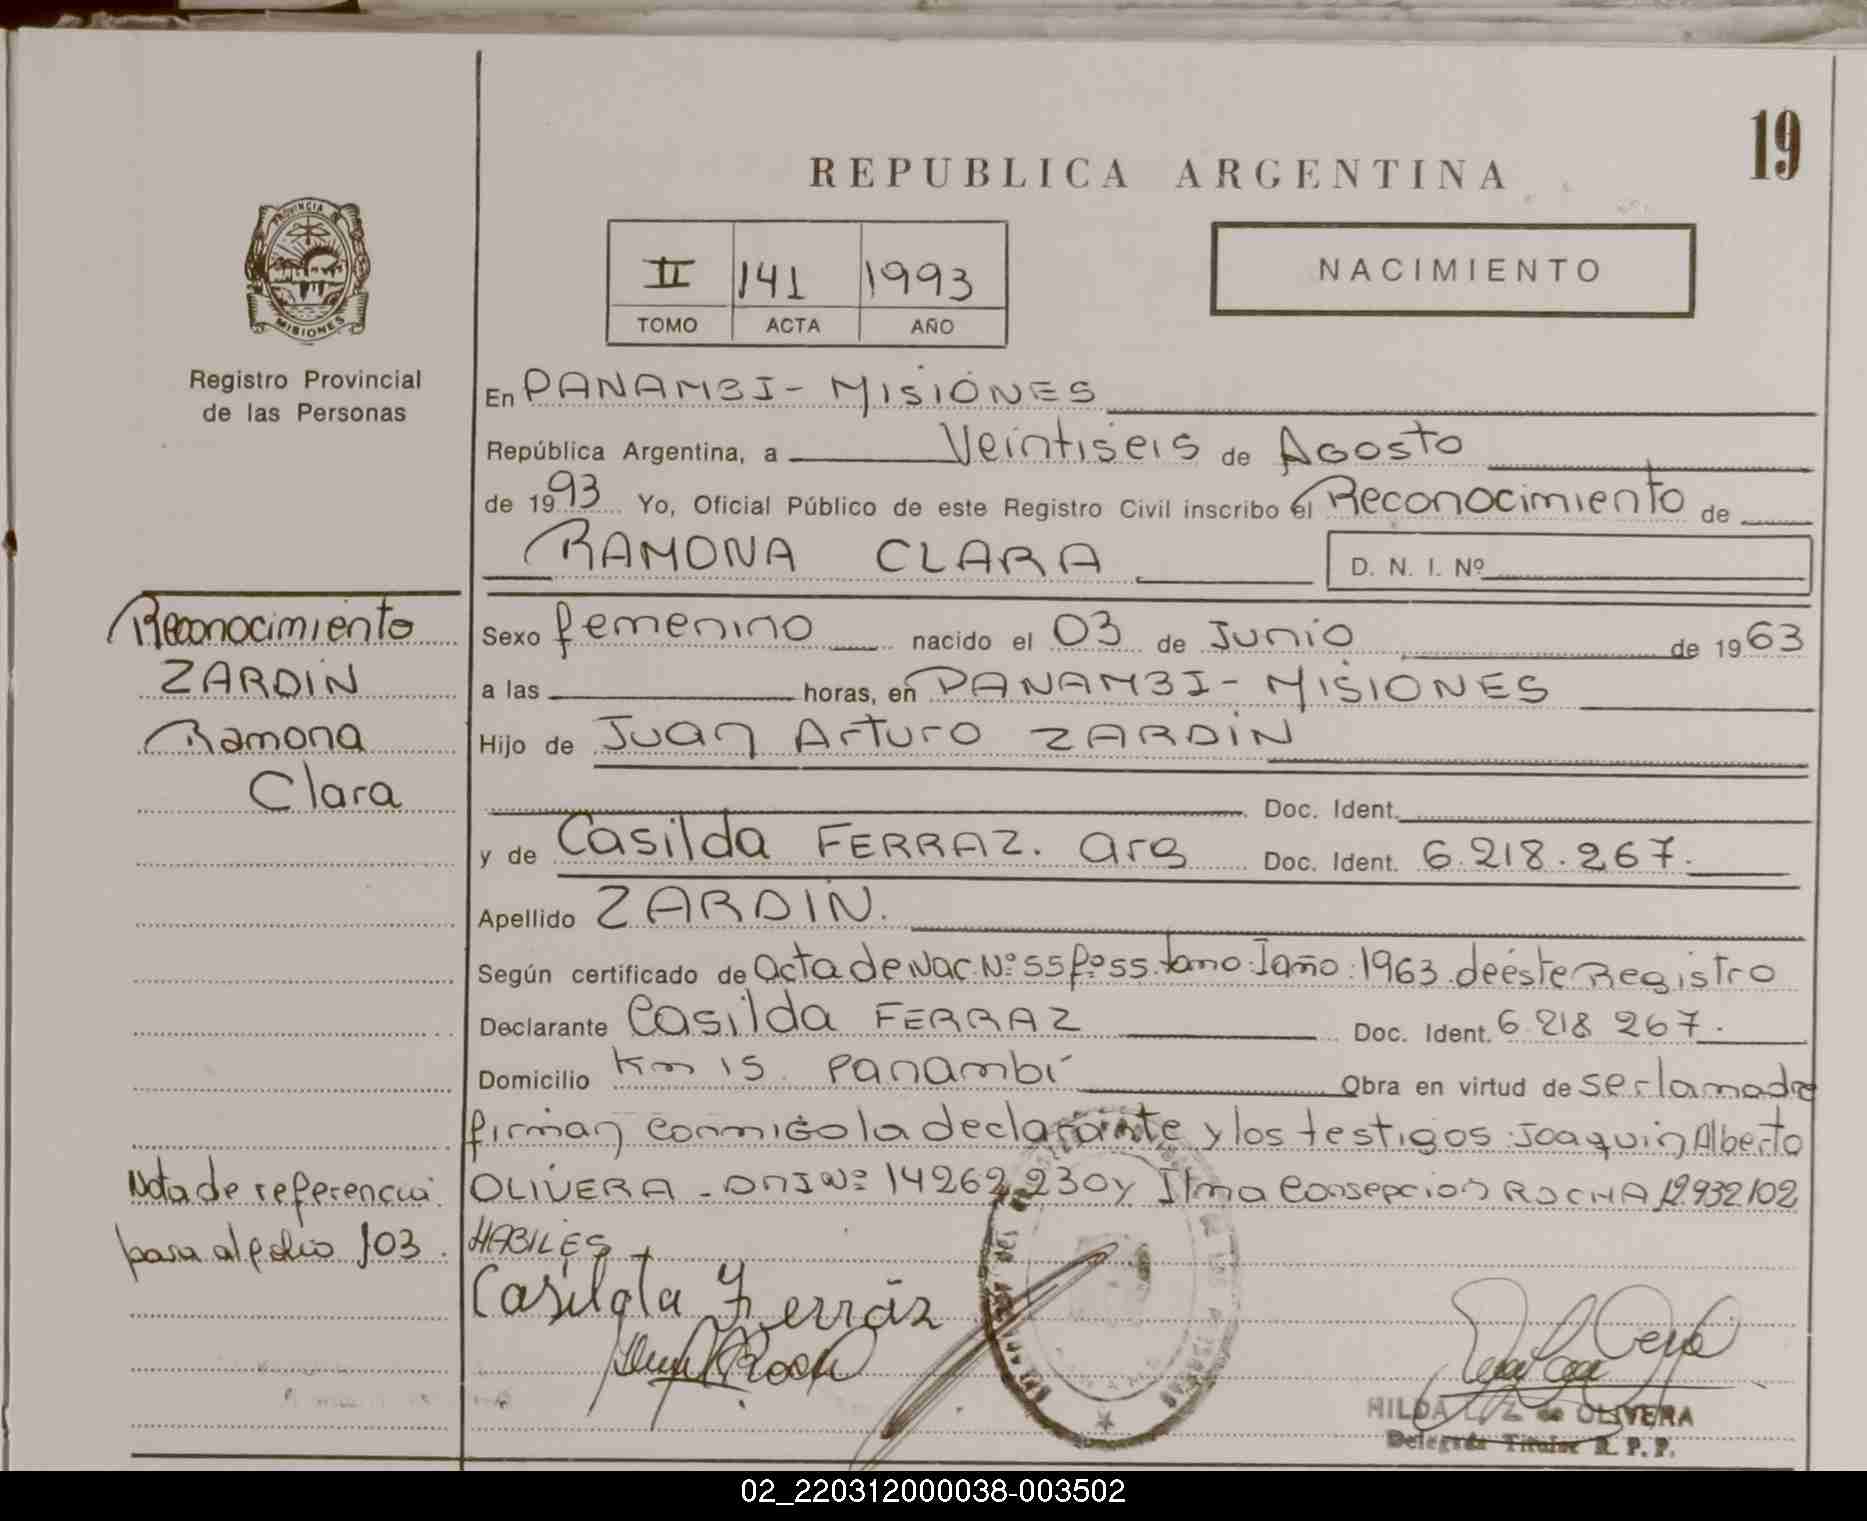 19
REPUBLICA ARGENTINA
PROVINCIA DE
MISIONES
Registro Provincial
de las Personas
II 141 1993
TOMO ACTA AÑO
NACIMIENTO
En PANAMBI - MISIONES
República Argentina, a Veintiseis de Agosto
de 1993 Yo, Oficial Público de este Registro Civil inscribo el Reconocimiento de
RAMONA CLARA D. N. I. Nº
Sexo femenino nacido el 03 de Junio de 1963
a las horas, en PANAMBI - MISIONES
Hijo de Juan Arturo ZARDIN
Doc. Ident.
y de Casilda FERRAZ. arg Doc. Ident. 6.218.267.
Apellido ZARDIN.
Según certificado de Acta de Nac. Nº 55 fº 55. tomo I año: 1963. de éste Registro
Declarante Casilda FERRAZ Doc. Ident. 6.218 267.
Domicilio Km 15. Panambí Obra en virtud de ser la madre
firman conmigo la declarante y los testigos: Joaquin Alberto
OLIVERA - DNI Nº 14262,230 y Ilma Consepcion ROCHA 12.932102
HABILES.
Casilda Ferraz
Reconocimiento
ZARDIN
Ramona
Clara
Nota de referencia
pasa al folio 103.
HILDA L. Z. de OLIVERA
Delegada Titular R. P. P.
02_220312000038-003502